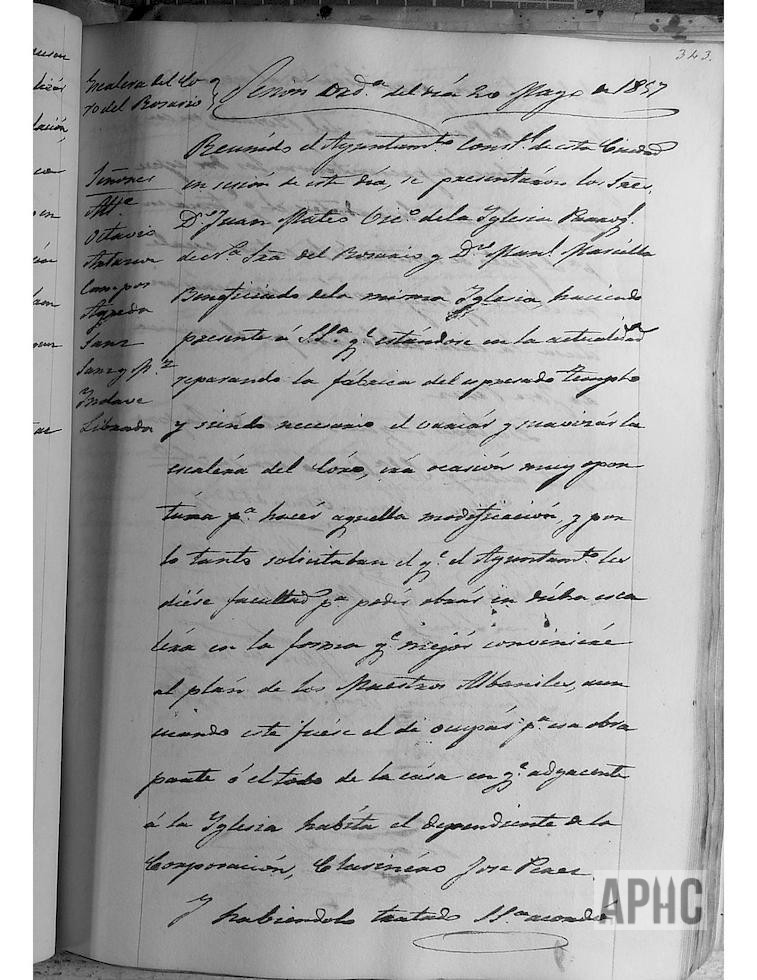 343.
Escalera del Co-
ro del Rosario
Sesión Ord.ª del día 20 Mayo de 1857
Señores
Alc.e
Octavio
Antanor
Campos
Agreda
Sanz
Sanz y M.z
Yndave
Librada
Reunido el Ayuntam.to Const.l de esta Ciudad
en sesión de este día, se presentarón los Sres.
D.n Juan Mateo Vic.o de la Yglesia Parroq.l
de N.a Sra del Rosario y D.n Man.l Marcilla
Beneficiado de la misma Yglesia, haciendo
presente á SS.a q.e estándose en la actualidad
reparando la fábrica del espresado templo
y siendo necesario el variár y suavizár la
escaléra del Córo, era ocasión muy opor
túna p.a hacér aquella modificación, y por
lo tanto solicitaban el q.e el Ayuntam.to les
diése facultad p.a podér obrár en dicha esca
léra en la forma q.e mejór conviniése
al plán de los Maestros Albañiles, aun
cuando este fuése el de ocupár p.a esa obra
parte ó el todo de la cása en q.e adyacente
á la Yglesia habíta el dependiente de la
Corporación, Clarinéro José Peres.
Y habiendolo tratado SS.a acordó
APHC